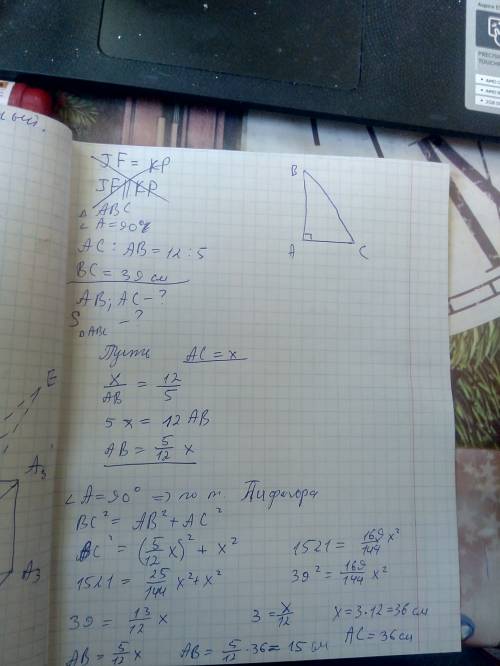 JF = KP
JF || KP
△ ABC
∠A = 90°
AC : AB = 12 : 5
BC = 39 см
AB; AC - ?
S △ABC - ?
B
A
C
Пусть AC = x
x/AB = 12/5
5x = 12 AB
AB = 5/12 x
∠A = 90° => по т. Пифагора
BC² = AB² + AC²
BC² = (5/12 x)² + x²
1521 = 25/144 x² + x²
1521 = 169/144 x²
39² = 169/144 x²
39 = 13/12 x
3 = x/12
x = 3·12 = 36 см
AC = 36 см
AB = 5/12 x
AB = 5/12 · 36 = 15 см
E
A₃
A₃